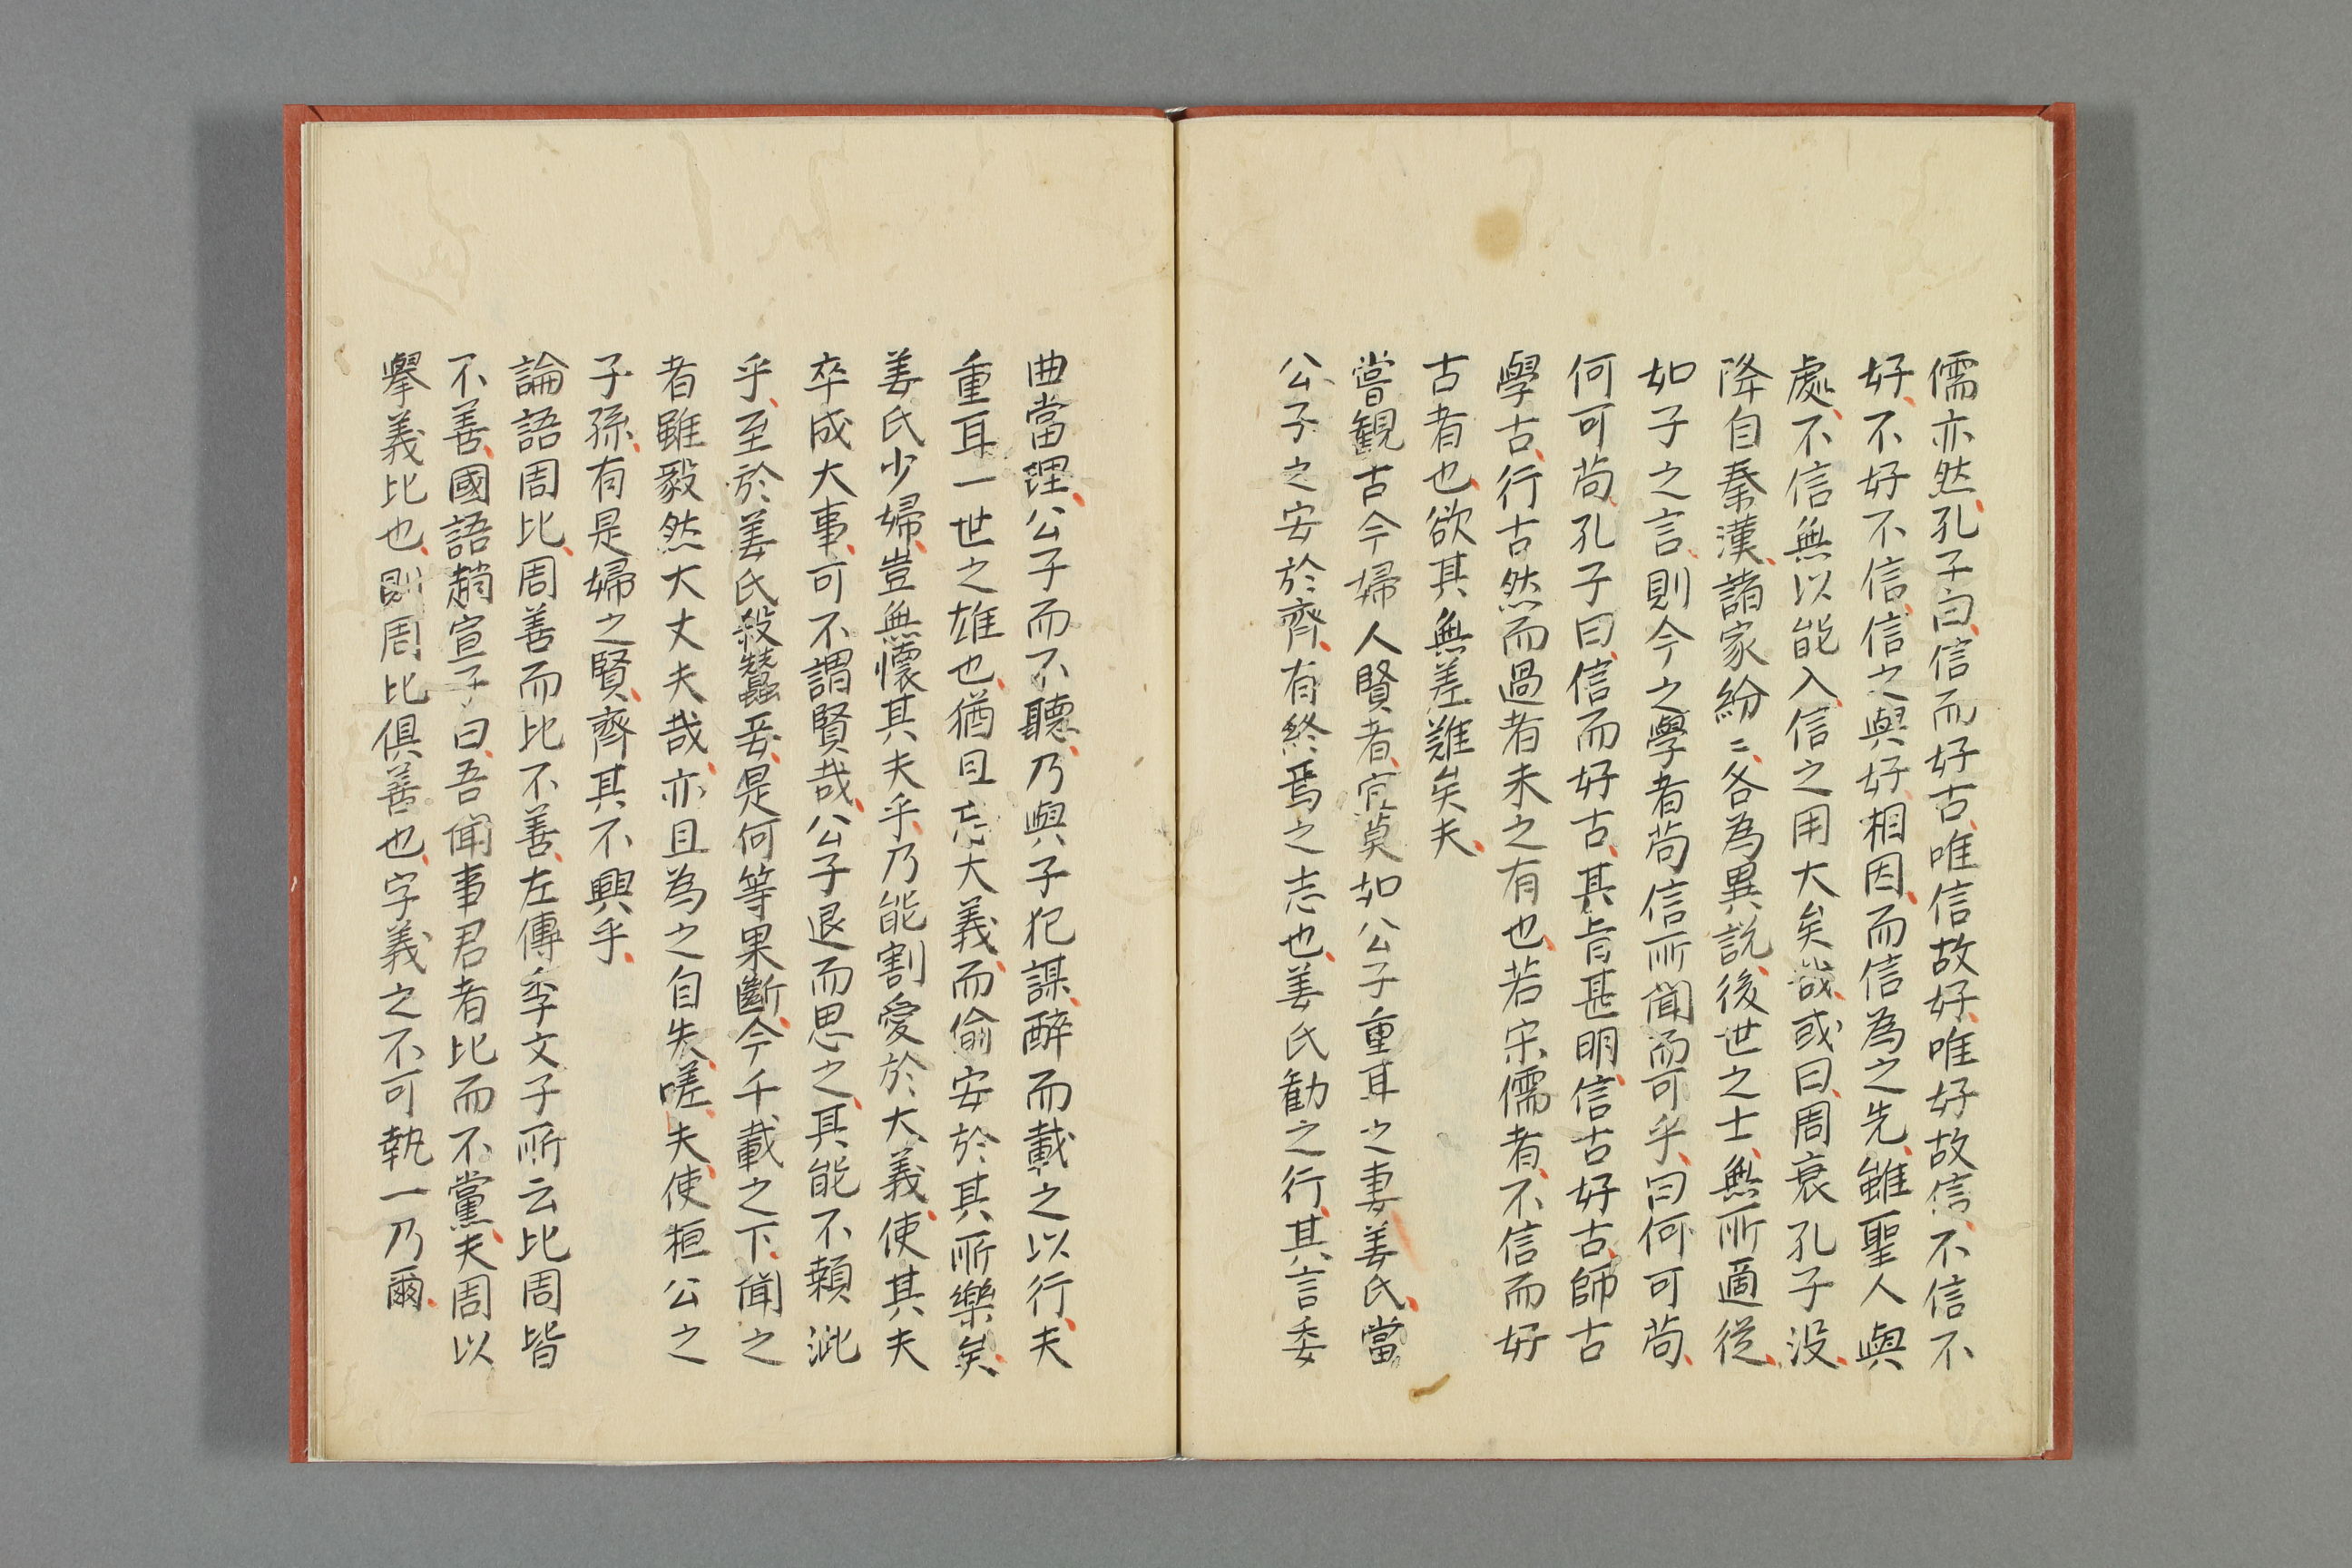 儒亦然、孔子曰、信而好古、唯信故好、唯好故信、不信不
好、不好不信、信之與好、相因、而信為之先、雖聖人與
處、不信無以能入、信之用大矣哉、或曰、周衰孔子没、
降自秦漢、諸家紛〻、各為異説、後世之士、無所適從、
如子之言、則今之學者苟信所聞而可乎、曰何可苟、
何可苟、孔子曰、信而好古、其旨甚明、信古好古、師古
學古、行古然而過者未之有也、若宋儒者、不信而好
古者也、欲其無差難矣夫、
嘗観古今婦人賢者、宜莫如公子重耳之妻姜氏、當
公子之安於齊、有終焉之志也、姜氏勧之行、其言委
曲當理、公子而不聽、乃與子犯謀、醉而載之以行、夫
重耳一世之雄也、猶且忘大義、而偷安於其所樂矣、
姜氏少婦、豈無懷其夫乎、乃能割愛於大義、使其夫
卒成大事、可不謂賢哉、公子退而思之、其能不顙泚
乎、至於姜氏殺蠶妾、是何等果斷、今千載之下、聞之
者雖毅然大丈夫哉、亦且為之自失、嗟、夫、使桓公之
子孫、有是婦之賢、齊其不興乎、
論語周比、周善而比不善、左傳季文子所云比周皆
不善、國語趙宣子曰、吾聞事君者比而不黨、夫周以
擧義比也、則周比俱善也、字義之不可執一乃爾、